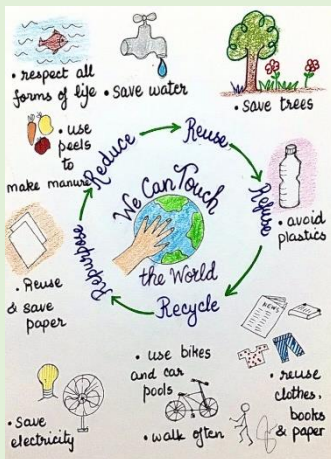 • respect all
forms of life
• save water
• save trees
• use
peels
to
make manure
Reduce
Reuse
Refuse
Recycle
Repurpose
We Can Touch
the World
• avoid
plastics
• Reuse
& save
paper
NEWS
• reuse
clothes,
books
& paper
• use bikes
and car
pools
• walk often
• Save
electricity